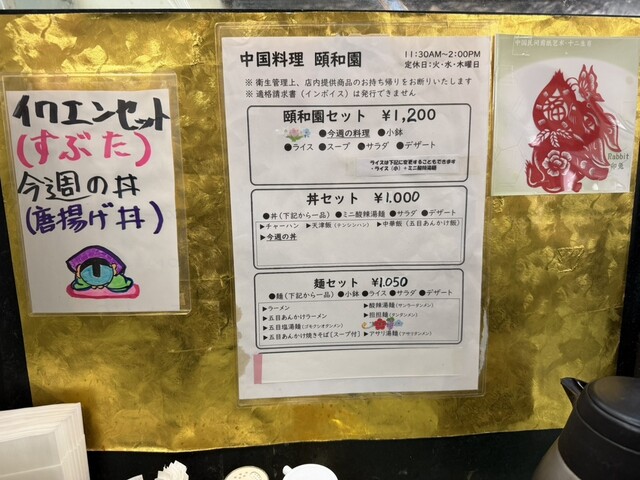 イワエンセット
(すぶた)
今週の丼
(唐揚げ丼)
中国料理 頤和園
11:30AM〜2:00PM
定休日:火・水・木曜日
※ 衛生管理上、店内提供商品のお持ち帰りをお断りいたします
※ 適格請求書（インボイス）は発行できません
頤和園セット ¥1,200
●今週の料理 ●小鉢
●ライス ●スープ ●サラダ ●デザート
ライスは下記に変更することもできます
・ライス（小）＋ミニ酸辣湯麺
丼セット ¥1.000
●丼（下記から一品）●ミニ酸辣湯麺 ●サラダ ●デザート
▶チャーハン ▶天津飯（テンシンハン）▶中華飯（五目あんかけ飯）
▶今週の丼
麺セット ¥1.050
●麺（下記から一品）●小鉢 ●ライス ●サラダ ●デザート
▶ラーメン ▶酸辣湯麺（サンラータンメン）
▶五目あんかけラーメン ▶担担麺（タンタンメン）
▶五目塩湯麺（ゴモクシオタンメン）
▶五目あんかけ焼きそば（スープ付）▶アサリ湯麺（アサリタンメン）
Rabbit
卯兔